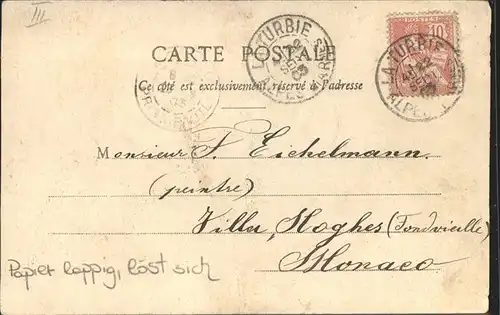 III
CARTE POSTALE
Ce côté est exclusivement réservé à l'adresse
LA TURBIE
ALPES MAR
LA TURBIE
ALPES
POSTES
10
Monsieur F. Eichelmann.
(peintre)
Villa, Hoghes (Fondvieille)
Monaco
Papier lappig, löst sich